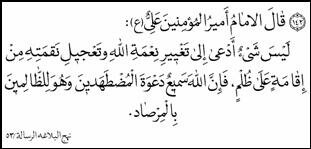 ﴿١٤٢﴾ قَالَ الإمَامُ أَمِيرُ المُؤْمِنِينَ عَلِيٌّ (ع):
لَيْسَ شَيْءٌ أَدْعَى إِلَى تَغْيِيرِ نِعْمَةِ اللهِ وَتَعْجِيلِ نَقِمَتِهِ مِنْ
إِقَامَةٍ عَلَى ظُلْمٍ، فَإِنَّ اللهَ سَمِيعٌ دَعْوَةَ المُضْطَهَدِينَ وَهُوَ لِلظَّالِمِينَ
بِالْمِرْصَادِ.
نهج البلاغة الرسالة/٥٣